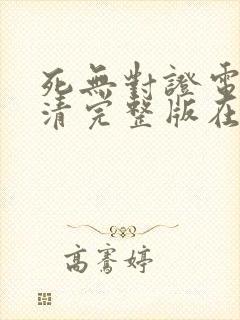 死無對證電
清完整版在
高騫婷